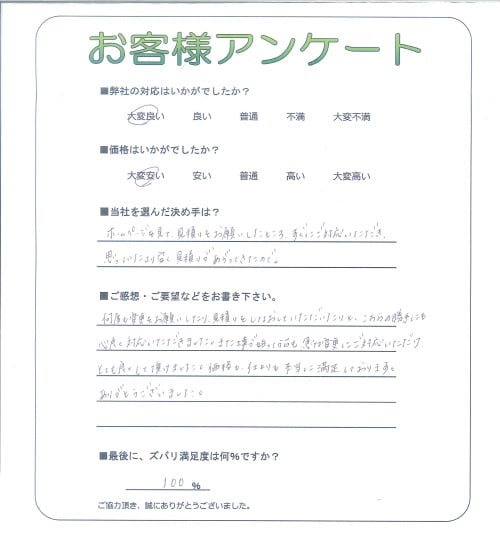 お客様アンケート
■弊社の対応はいかがでしたか？
大変良い 良い 普通 不満 大変不満
■価格はいかがでしたか？
大変安い 安い 普通 高い 大変高い
■当社を選んだ決め手は？
ホームページを見て、見積りをお願いしたところ、すぐにご対応いただき、
思っていたより安く見積りがあがってきたので。
■ご感想・ご要望などをお書き下さい。
何度も変更をお願いしたり、見積りをしなおしていただいたりと、こちらの勝手にも
心良く対応いただきました。また工事が始まってからも 急な変更にご対応いただけ
とても良くして頂けました。価格も、仕上りも本当に満足しております。
ありがとうございました。
■最後に、ズバリ満足度は何%ですか？
100 %
ご協力頂き、誠にありがとうございました。